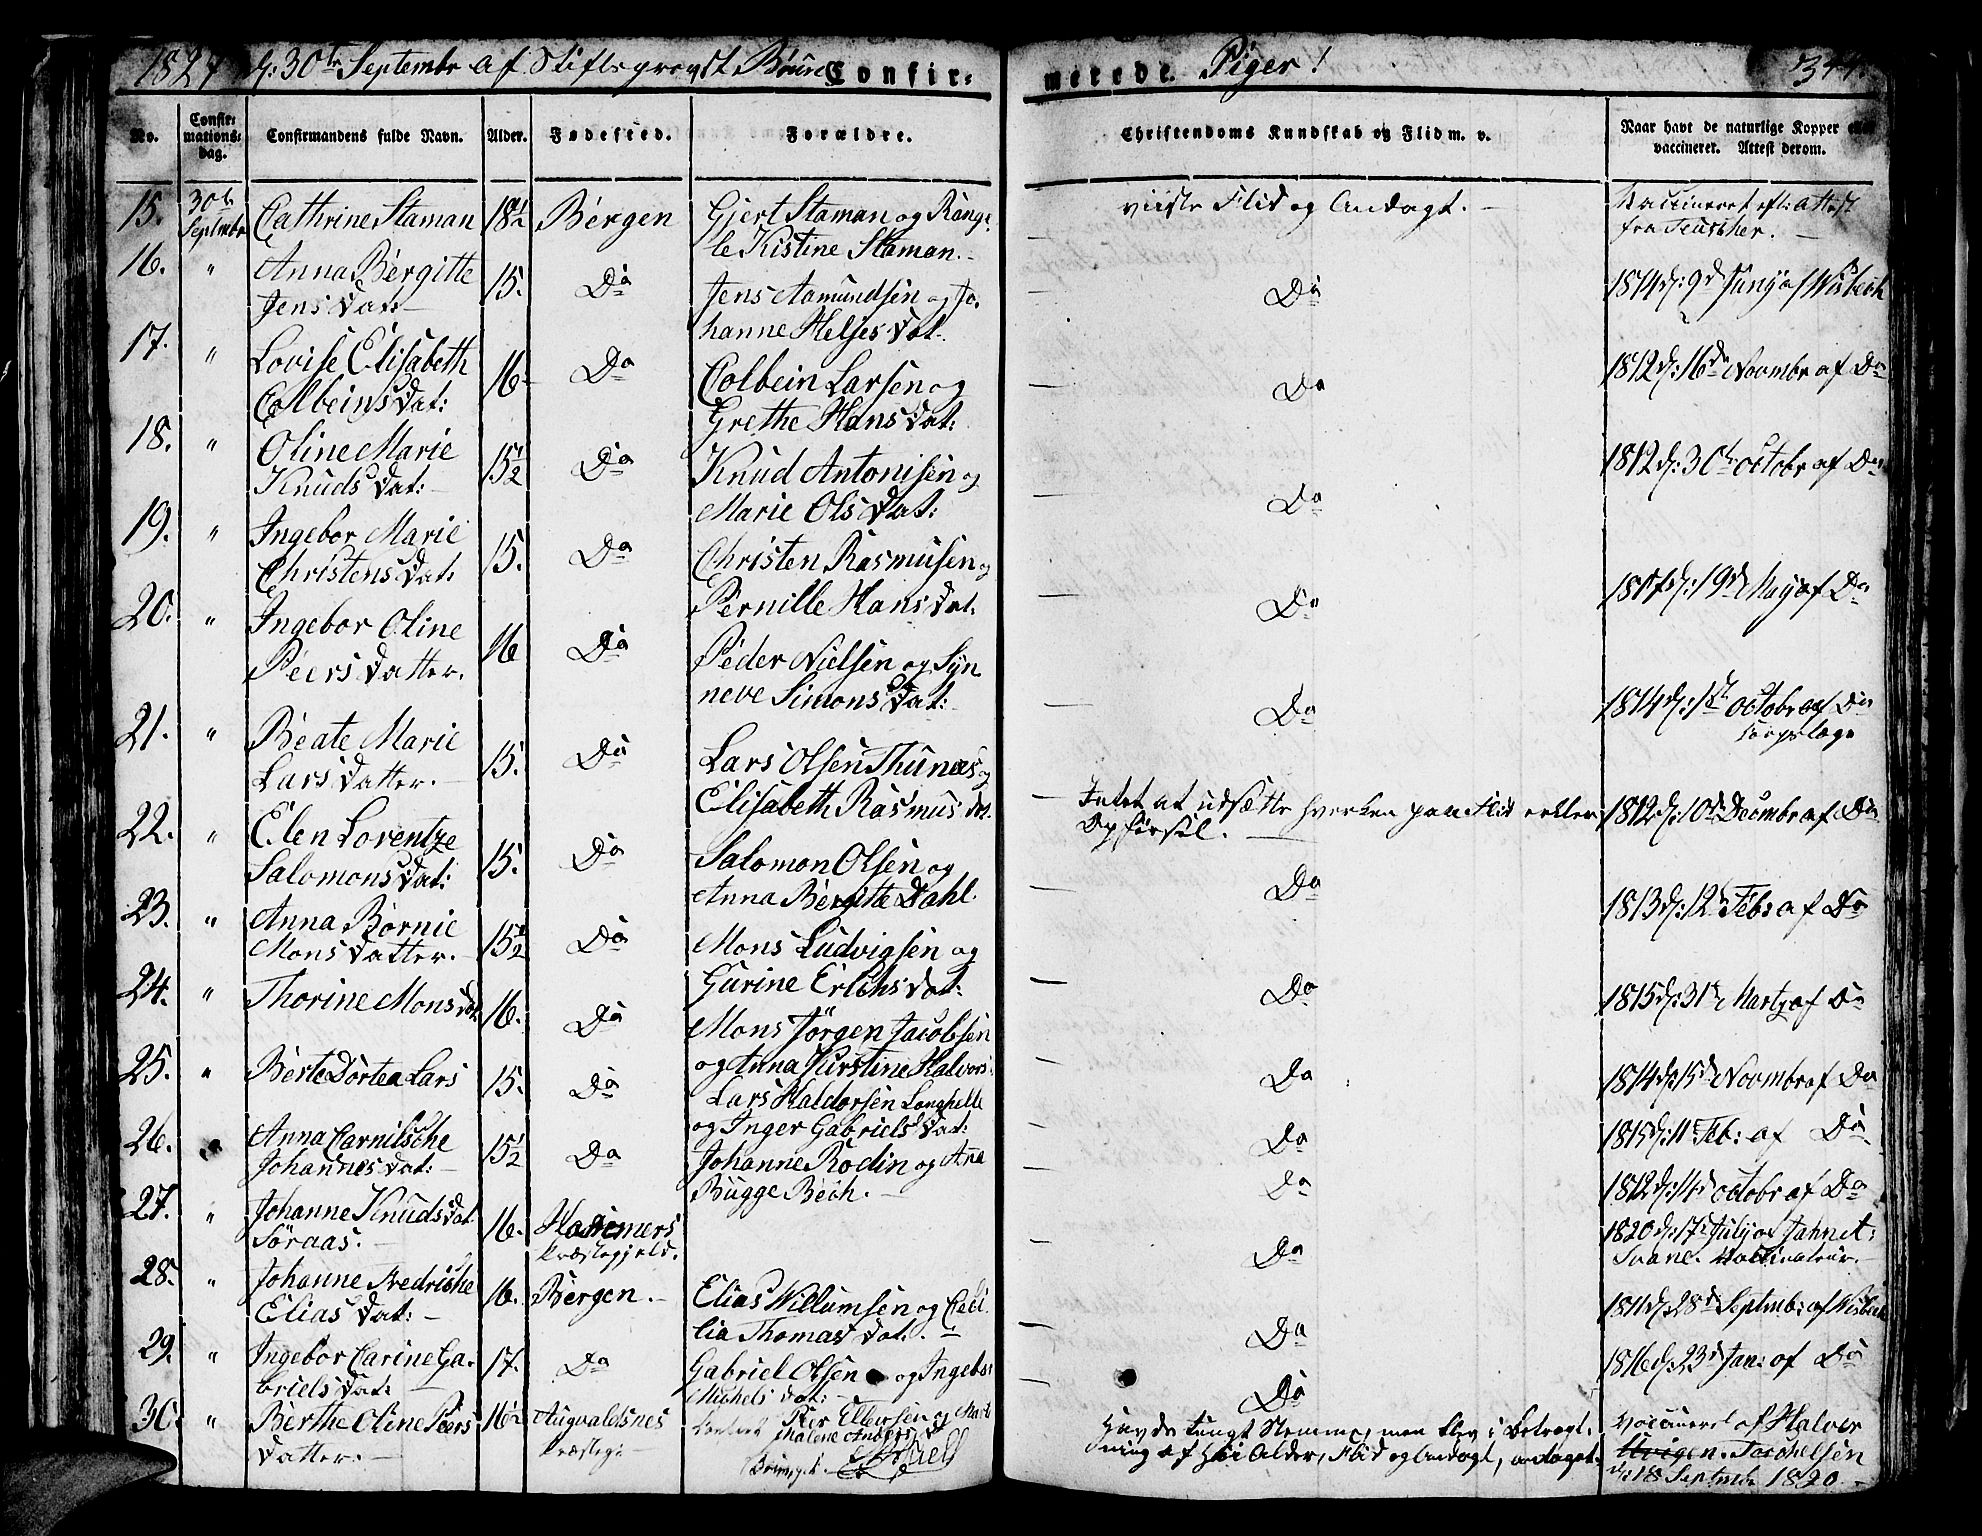 1827 d: 30te Septembr af Stiftsprovst Confir-
merede. Piger!
No.
Confir-
mations-
dag.
Confirmandens fulde Navn.
Alder.
Fødested.
Forældre.
Christendoms Kundskab og Flid m. v.
Naar havt de naturlige Kopper eller
vaccineret. Attest derom.
15. 30te Septembr Cathrine Staman 18½ Bergen Gjert Staman og Rang-
le Kistine Staman.
viiste Flid og Andagt.
Vaccineret eft: attest
fra
16. " Anna Bergitte
Jens Dat: 15. Do
Jens Aamundsen og Jo-
hanne Heljes Dat.
Do
1814 d: 9d Juny af
17. " Lovise Elisabeth
Colbeins Dat: 16 Do
Colbein Larsen og
Grethe Hans Dat:
Do
1812 d: 16de Novmbr af Do
18. " Oline Marie
Knuds Dat: 15½ Do
Knud Antonisen og
Marie Ols Dat:
Do
1812 d: 30te octobr af Do
19. " Ingebor Marie
Christens Dat: 15. Do
Christen Rasmusen og
Pernille Hans Dat.
Do
d: 19d May af Do
20. " Ingebor Oline
Peers Datter. 16 Do
Peder Nielsen og Syn
neve Simons Dat:
Do
1814 d: 1d octobr af Do
21. " Beate Marie
Lars Datter. 15. Do
Lars Olsen Thunes og
Elisabeth Rasmus Dat.
Intet at udsætte hverken paa Flid eller
Opførsel.
1812 d: 10de Decmbr af Do
22. " Elen Lorentze
Salomons Dat: 15. Do
Salomon Olsen og
Anna Bergitte Dahl.
Do
1813 d: 12 Feb: af Do
23. " Anna Bornie
Mons Datter. 15½ Do
Mons Ludvigsen og
Gurine Erichs Dat:
Do
1815 d: 31te Marty af Do
24. " Thorine Mons Dat. 16. Do
Mons Jørgen Jacobsen
og Anna Kirstine Halvors:
Do
1814 d: 15d Novmbr af Do
25. " Berte Dortea Lars 15. Do
Lars Haldorsen Langhelle
og Inger Gabriels Dat:
Do
1815 d: 11te Feb: af Do
26. " Anna Carnilsche
Johannes Dat: 15½ Do
Johanne Rodin og Ana
Bugge Bech.
Do
1812 d: 14d octobr af Do
27. " Johanne Knuds Dat
Søraas. 16.
Præstegjeld.
Do
1820 d: 17d July af Jahnet:
Svane. Vaccinateur.
28. " Johanne Fredrische
Elias Dat: 16. Bergen.
Elias Willumsen og Ceci
lia Thomas Dat.
Do
1811 d: 28d Septmb: af
29. " Ingebor Carine Ga-
briels Dat: 17. Do
Gabriel Olsen og Ingebor
Michels Dat:
Do
1816 d: 23d Jan: af Do
30. " Berthe Oline Peers
Datter. 16½ Augvaldsnes
Præsteg:
Peer Ellersen og
Malene
Havde tungt Nemme, men blev i Betragt-
ning af høi Alder, Flid og Andagt, antaget.
vaccineret af Halvor
Jacobelsen
d: 18 Septmbr 1820.